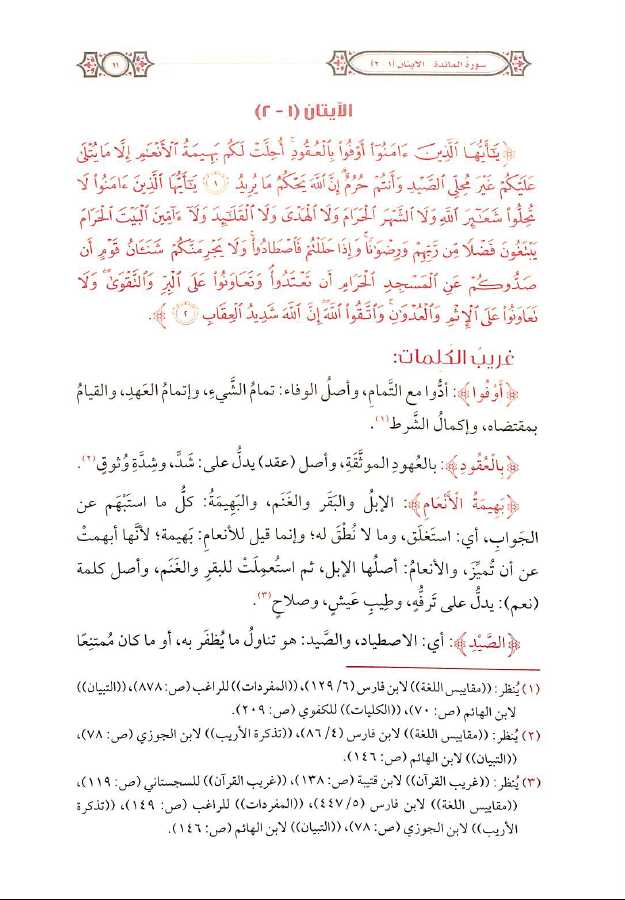 سورةُ المائدة الآيتان (١-٢)
١١
الآيتان (١ - ٢)
﴿يَٰٓأَيُّهَا ٱلَّذِينَ ءَامَنُوٓاْ أَوْفُواْ بِٱلْعُقُودِ ۚ أُحِلَّتْ لَكُم بَهِيمَةُ ٱلْأَنْعَٰمِ إِلَّا مَا يُتْلَىٰ
عَلَيْكُمْ غَيْرَ مُحِلِّى ٱلصَّيْدِ وَأَنتُمْ حُرُمٌ ۗ إِنَّ ٱللَّهَ يَحْكُمُ مَا يُرِيدُ ١ يَٰٓأَيُّهَا ٱلَّذِينَ ءَامَنُواْ لَا
تُحِلُّواْ شَعَٰٓئِرَ ٱللَّهِ وَلَا ٱلشَّهْرَ ٱلْحَرَامَ وَلَا ٱلْهَدْىَ وَلَا ٱلْقَلَٰٓئِدَ وَلَآ ءَآمِّينَ ٱلْبَيْتَ ٱلْحَرَامَ
يَبْتَغُونَ فَضْلًا مِّن رَّبِّهِمْ وَرِضْوَٰنًا ۚ وَإِذَا حَلَلْتُمْ فَٱصْطَادُواْ ۚ وَلَا يَجْرِمَنَّكُمْ شَنَـَٔانُ قَوْمٍ أَن
صَدُّوكُمْ عَنِ ٱلْمَسْجِدِ ٱلْحَرَامِ أَن تَعْتَدُواْ ۘ وَتَعَاوَنُواْ عَلَى ٱلْبِرِّ وَٱلتَّقْوَىٰ ۖ وَلَا
تَعَاوَنُواْ عَلَى ٱلْإِثْمِ وَٱلْعُدْوَٰنِ ۚ وَٱتَّقُواْ ٱللَّهَ ۖ إِنَّ ٱللَّهَ شَدِيدُ ٱلْعِقَابِ ٢﴾.
غريبُ الكلمات:
﴿أَوْفُوا﴾: أدُّوا مع التَّمامِ، وأصل الوفاء: تمامُ الشَّيءِ، وإتمامُ العَهدِ، والقيامُ
بمقتضاه، وإكمالُ الشَّرط(١).
﴿بِالْعُقُودِ﴾: بالعُهودِ الموثَّقَةِ، وأصل (عقد) يدلُّ على: شَدٍّ، وشِدَّةِ وُثوقٍ(٢).
﴿بَهِيمَةُ الْأَنْعَامِ﴾: الإبلُ والبَقَر والغَنَم، والبَهِيمَةُ: كلُّ ما استَبْهَم عن
الجَوابِ، أي: استَغلَق، وما لا نُطْقَ له؛ وإنما قيل للأنعامِ: بَهيمة؛ لأنَّها أبهمتْ
عن أن تُميِّزَ، والأنعامُ: أصلُها الإبل، ثم استُعمِلَتْ للبقرِ والغَنَم، وأصل كلمة
(نعم): يدلُّ على تَرفُّهٍ، وطِيبِ عَيشٍ، وصلاحٍ(٣).
﴿الصَّيْدِ﴾: أي: الاصطياد، والصَّيد: هو تناولُ ما يُظفَر به، أو ما كان مُمتنِعًا
(١) يُنظر: ((مقاييس اللغة)) لابن فارس (٦/ ١٢٩)، ((المفردات)) للراغب (ص: ٨٧٨)، ((التبيان))
لابن الهائم (ص: ٧٠)، ((الكليات)) للكفوي (ص: ٢٠٩).
(٢) يُنظر: ((مقاييس اللغة)) لابن فارس (٤/ ٨٦)، ((تذكرة الأريب)) لابن الجوزي (ص: ٧٨)،
((التبيان)) لابن الهائم (ص: ١٤٦).
(٣) يُنظر: ((غريب القرآن)) لابن قتيبة (ص: ١٣٨)، ((غريب القرآن)) للسجستاني (ص: ١١٩)،
((مقاييس اللغة)) لابن فارس (٥/ ٤٤٧)، ((المفردات)) للراغب (ص: ١٤٩)، ((تذكرة
الأريب)) لابن الجوزي (ص: ٧٨)، ((التبيان)) لابن الهائم (ص: ١٤٦).